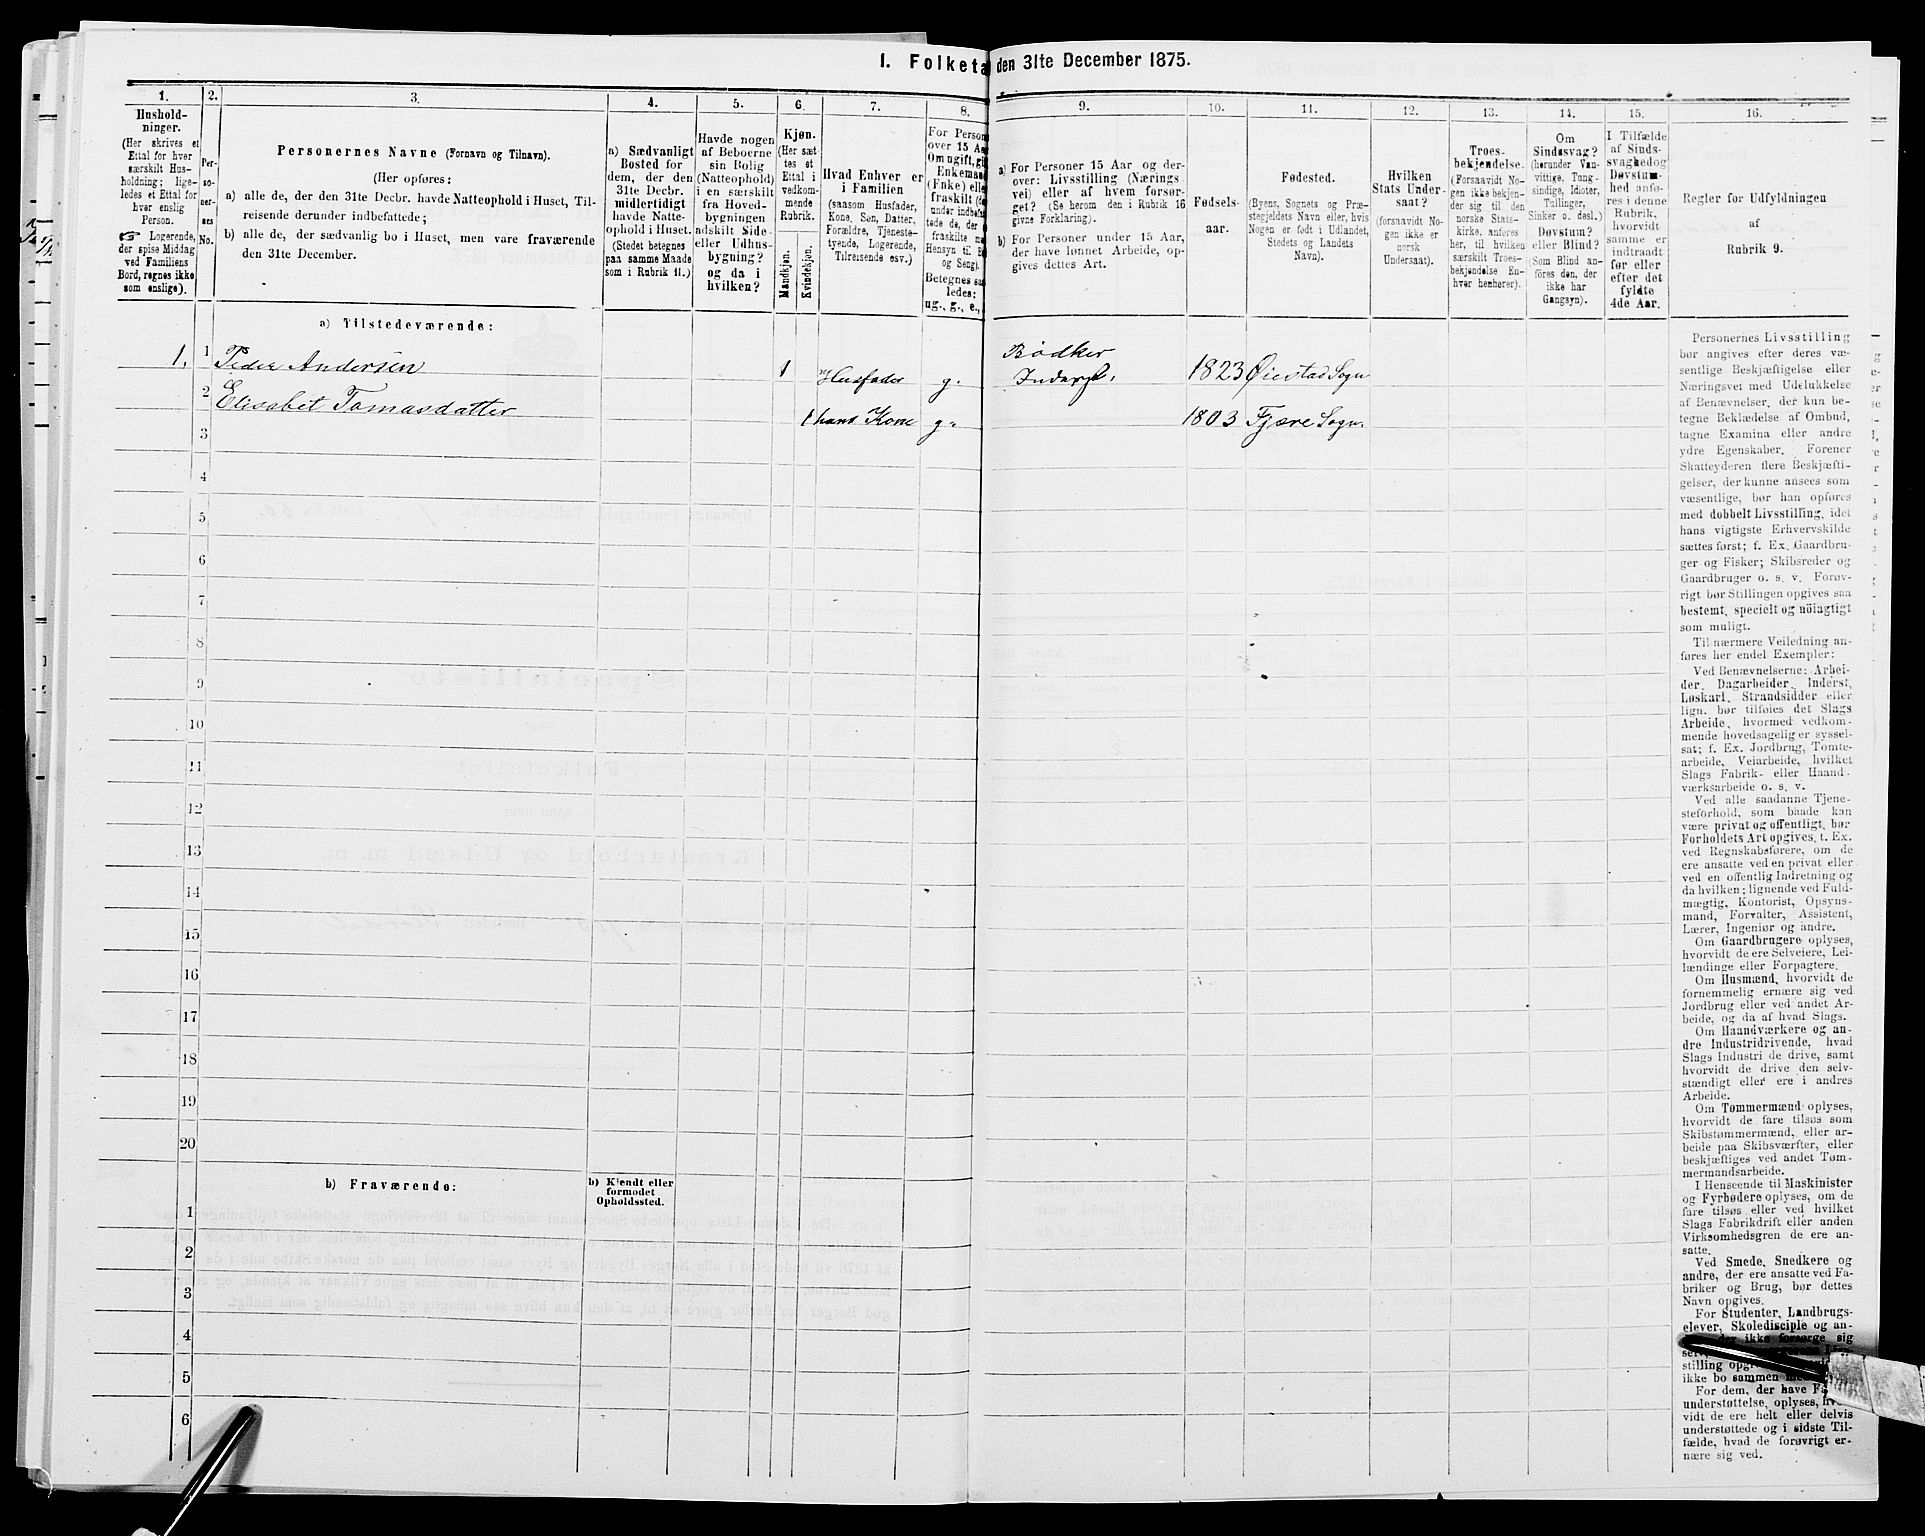 I. Folketa den 31te December 1875.
1.
2.
3.
4.
5.
6.
7.
8.
9.
10.
11.
12.
13.
14.
15.
16.
Hushold-
ninger.
(Her skrives et
Ettal for hver
særskilt Hus-
holdning; lige-
ledes et Ettal for
hver enslig
Person.
☞ Logerende,
der spise Middag
ved Familiens
Bord, regnes ikke
som enslige).
Per-
so-
ner-
nes
No.
Personernes Navne (Fornavn og Tilnavn).
(Her opføres:
a) alle de, der den 31te Decbr. havde Natteophold i Huset, Til-
reisende derunder indbefattede;
b) alle de, der sædvanlig bo i Huset, men vare fraværende
den 31te December.
a) Sædvanligt
Bosted for
dem, der den
31te Decbr.
midlertidigt
havde Natte-
ophold i Huset.
(Stedet betegnes
paa samme Maade
som i Rubrik 11.)
Havde nogen
af Beboerne
sin Bolig
(Natteophold)
i en særskilt
fra Hoved-
bygningen
adskilt Side-
eller Udhus-
bygning?
og da i
hvilken?
Kjøn.
(Her sæt-
tes et
Ettal i
vedkom-
mende
Rubrik.
Mandkjøn.
Kvindekjøn.
Hvad Enhver er
i Familien
(saasom Husfader,
Kone, Søn, Datter,
Forældre, Tjeneste-
tyende, Logerende,
Tilreisende osv.)
For Person
over 15 Aa
Om ugift, gif
Enkeman
(Enke) elle
fraskilt (de
under indbefat
tede de, der e
fraskilte me
Hensyn til B
og Seng).
Betegnes saa
ledes:
ug., g., e.,
a) For Personer 15 Aar og der-
over: Livsstilling (Nærings-
vei) eller af hvem forsør-
get? (Se herom den i Rubrik 16
givne Forklaring).
b) For Personer under 15 Aar,
der have lønnet Arbeide, op-
gives dettes Art.
Fødsels-
aar.
Fødested.
(Byens, Sognets og Præ-
stegjeldets Navn eller, hvis
Nogen er født i Udlandet,
Stedets og Landets
Navn).
Hvilken
Stats Under-
saat?
(forsaavidt No-
gen ikke er
norsk
Undersaat).
Troes-
bekjendelse.
(Forsaavidt No-
gen ikke bekjen-
der sig til den
norske Stats-
kirke, anføres
her, til hvilken
særskilt Troes-
bekjendelse En-
hver henhører).
Om
Sindssvag?
(herunder Van-
vittige, Tung-
sindige, Idioter,
Tullinger,
Sinker o. desl.)
Døvstum?
eller Blind?
(Som Blind an-
føres den, der
ikke har
Gangsyn).
I Tilfælde
af Sinds-
svaghed og
Døvstum-
hed anfø-
res i denne
Rubrik,
hvorvidt
samme er
indtraadt
før eller
efter det
fyldte
4de Aar.
Regler for Udfyldningen
af
Rubrik 9.
a) Tilstedeværende:
1. 1 Peder Andersen 1 Husfader g. Bødker
Inderst. 1823 Øiestad Sogn
2 Elisabet Tomasdatter 1 hans Kone g. 1803 Fjære Sogn
3
4
5
6
7
8
9
10
11
12
13
14
15
16
17
18
19
20
b) Fraværende:
b) Kjendt eller
formodet
Opholdssted.
1
2
3
4
5
6
Personernes Livsstilling
bør angives efter deres væ-
sentlige Beskjæftigelse eller
Næringsvei med Udelukkelse
af Benævnelser, der kun be-
tegne Beklædelse af Ombud,
tagne Examina eller andre
ydre Egenskaber. Forener
Skatteyderen flere Beskjæfti-
gelser, der kunne ansees som
væsentlige, bør han opføres
med dobbelt Livsstilling, idet
hans vigtigste Erhvervskilde
sættes først; f. Ex. Gaardbru-
ger og Fisker; Skibsreder og
Gaardbruger o. s. v. Forøv-
rigt bør Stillingen opgives saa
bestemt, specielt og nöiagtigt
som muligt.
Til nærmere Veiledning an-
føres her endel Exempler:
Ved Benævnelserne: Arbei-
der, Dagarbeider, Inderst,
Løskarl, Strandsidder eller
lign. bør tilføies det Slags
Arbeide, hvormed vedkom-
mende hovedsagelig er syssel-
sat; f. Ex. Jordbrug, Tomte-
arbeide, Veiarbeide, hvilket
Slags Fabrik- eller Haand-
værksarbeide o. s. v.
Ved alle saadanne Tjene-
steforhold, som baade kan
være privat og offentligt, bør
Forholdets Art opgives, t. Ex.
ved Regnskabsførere, om de
ere ansatte ved en privat eller
ved en offentlig Indretning og
da hvilken; lignende ved Fuld-
mægtig, Kontorist, Opsyns-
mand, Forvalter, Assistent,
Lærer, Ingeniør og andre.
Om Gaardbrugere oplyses,
hvorvidt de ere Selveiere, Lei-
lændinge eller Forpagtere.
Om Husmænd, hvorvidt de
fornemmelig ernære sig ved
Jordbrug eller ved andet Ar-
beide, og da af hvad Slags.
Om Haandværkere og an-
dre Industridrivende, hvad
Slags Industri de drive, samt
hvorvidt de drive den selv-
stændigt eller ere i andres
Arbeide.
Om Tømmermænd oplyses,
hvorvidt de fare tilsøs som
Skibstømmermænd, eller ar-
beide paa Skibsværfter, eller
beskjæftiges ved andet Tøm-
mermandsarbeide.
I Henseende til Maskinister
og Fyrbødere oplyses, om de
fare tilsøs eller ved hvilket
Slags Fabrikdrift eller anden
Virksomhedsgren de ere an-
satte.
Ved Smede, Snedkere og
andre, der ere ansatte ved Fa-
briker og Brug, bør dettes
Navn opgives.
For Studenter, Landbrugs-
elever, Skoledisciple og an-
der ikke forsørge sig
stilling opgi
ikke bo sammen
For dem, der have F
understøttelse, oplyses, hvor-
vidt de ere helt eller delvis
understøttede og i sidste Til-
fælde, hvad de forøvrigt er-
nære sig ved.